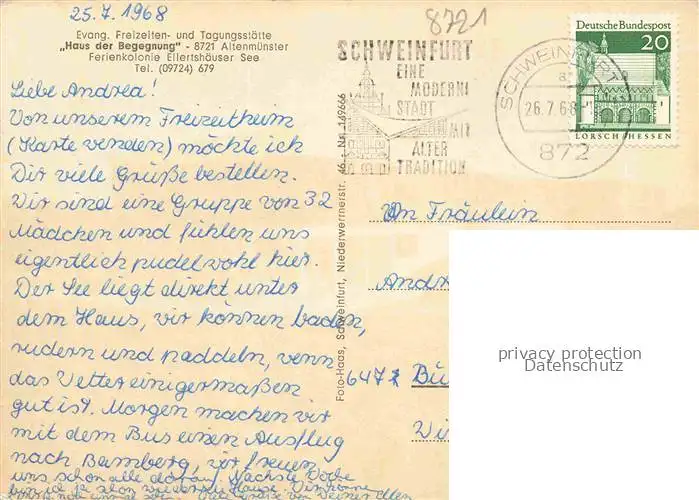 25.7.1968
8721
Evang. Freizeiten- und Tagungsstätte
„Haus der Begegnung" - 8721 Altenmünster
Ferienkolonie Ellertshäuser See
Tel. (09724) 679
Liebe Andrea!
Von unserem Freizeitheim
(Karte wenden) möchte ich
Dir viele Grüße bestellen.
Wir sind eine Gruppe von 32
Mädchen und fühlen uns
eigentlich pudelwohl hier.
Der See liegt direkt unter
dem Haus, wir können baden,
rudern und paddeln, wenn
das Wetter einigermaßen
gut ist. Morgen machen wir
mit dem Bus einen Ausflug
nach Bamberg, wir freuen
uns schon alle darauf. Nächste Woche
bin ich ja schon wieder zu Hause. Wir können
noch mal viele Grüße von Deiner Ellen
Foto-Haas, Schweinfurt, Niederwerrnerstr. 46 - Nr. 149666
SCHWEINFURT
EINE
MODERNE
STADT
MIT
ALTER
TRADITION
SCHWEINFURT
a
26.7.68
872
Deutsche Bundespost
20
LORSCH/HESSEN
An Fräulein
Andr
6471 Bü
Wi
privacy protection
Datenschutz